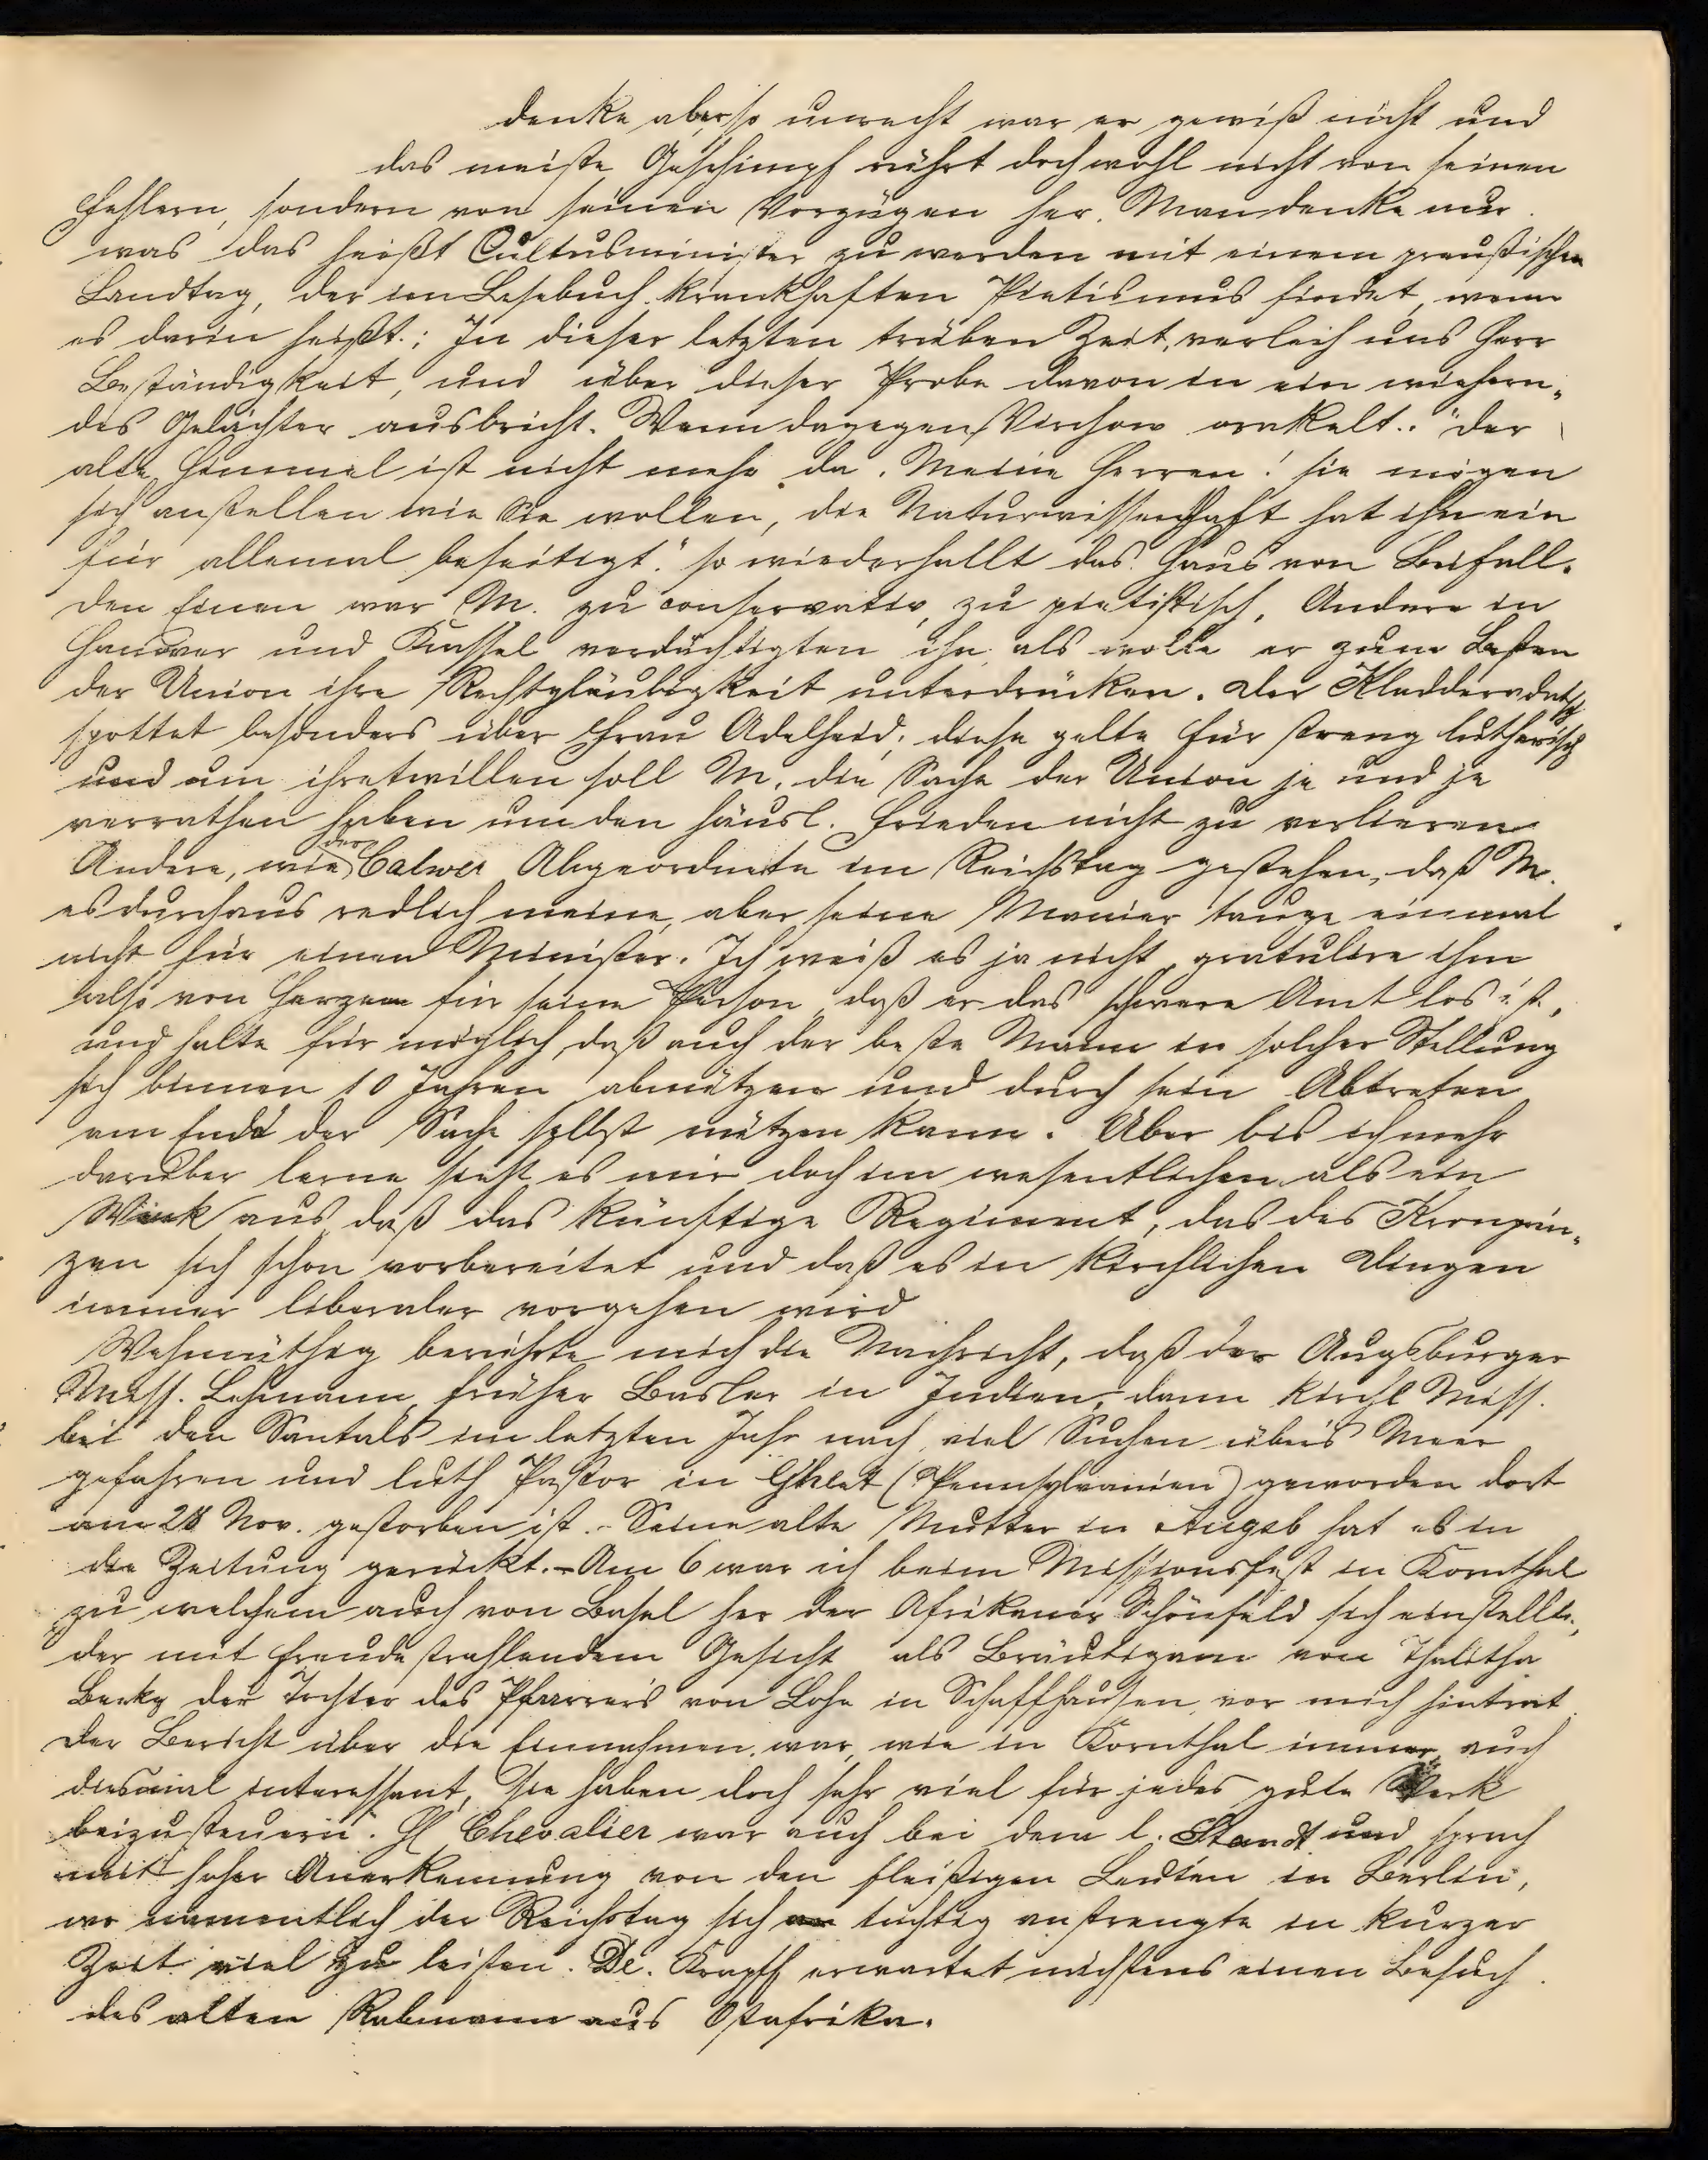 denke aber, so unrecht war er gewiß nicht und
das meiste Geschimpf rührt doch wohl nicht von seinen
Fehlern, sondern von seinen Vorzügen her. Man denke nur
was das heißt Cultusminister zu werden mit einem preußischen
Landtag, der im Lesebuch krankhaften Pietismus findet, wenn
es darin heißt: In dieser letzten trüben Zeit, verleih uns Herr
Beständigkeit, und über dieser Probe davon in ein wiehern-
des Gelächter ausbricht. Wenn dagegen Virchow orakelt: "Der
alte Himmel ist nicht mehr da. Meine Herren! sie mögen
sich anstellen wie Sie wollen, die Naturwissenschaft hat ihn ein
für allemal beseitigt." so wiederhallt das Haus von Beifall.
Den Einen war M. zu conservativ, zu pietistisch, Andere in
Hanover und Kassel verdächtigten ihn als wolle er zum Besten
der Union ihre Rechtgläubigkeit unterdrücken. Der Kladderadatsch
spottet besonders über Frau Adelheid; diese gelte für streng lutherisch
und um ihretwillen soll M. die Sache der Union je und je
verrathen haben um den häusl. Frieden nicht zu verlieren
Andere, wie der Calwer Abgeordnete im Reichstag gestehen, daß M.
es durchaus redlich meine, aber seine Manier tauge einmal
nicht für einen Minister. Ich weiß es ja nicht, gratulire ihm
also von Herzen für seine Person, daß er das schwere Amt los ist,
und halte für möglich, daß auch der beste Mann in solcher Stellung
sich binnen 10 Jahren abnützen und durch sein Abtreten
am Ende der Sache selbst nützen kann. Aber bis ich mehr
darüber lerne sieht es mir doch im wesentlichen als ein
Wink aus, daß das künftige Regiment, das des Kronprin-
zen sich schon vorbereitet und daß es in kirchlichen Dingen
immer liberaler vorgehen wird
Wehmüthig berührte mich die Nachricht, daß der Augsburger
Miss. Lehmann, früher Basler in Indien, dann kirchl Miss.
bei den Santals im letzten Jahr nach viel Suchen über's Meer
gefahren und luth Pastor in (Pennsylvanien) geworden dort
am 28 Nov. gestorben ist. - Seine alte Mutter in Augsb hat es in
die Zeitung gerückt. - Am 6 war ich beim Missionsfest in Kornthal
zu welchem auch von Basel her der Afrikaner Schönfeld sich einstellte,
der mit freudestrahlendem Gesicht als Bräutigam von Thalitha
der Tochter des Pfarrers von Lohn in Schaffhausen, vor mich hintrat.
Der Bericht über die Einnahmen war, wie in Kornthal immer, auch
diesmal interessant, sie haben doch sehr viel für jedes gute Werk
beizusteuern. Chevalier war auch bei dem l. Staudt und sprach
mit hoher Anerkennung von den fleißigen Leuten in Berlin,
wo namentlich der Reichstag sich tüchtig anstrengte in kurzer
Zeit viel zu leisten. Dr. Krapff erwartet nächstens einen Besuch
des alten Rebmann aus Ostafrika.